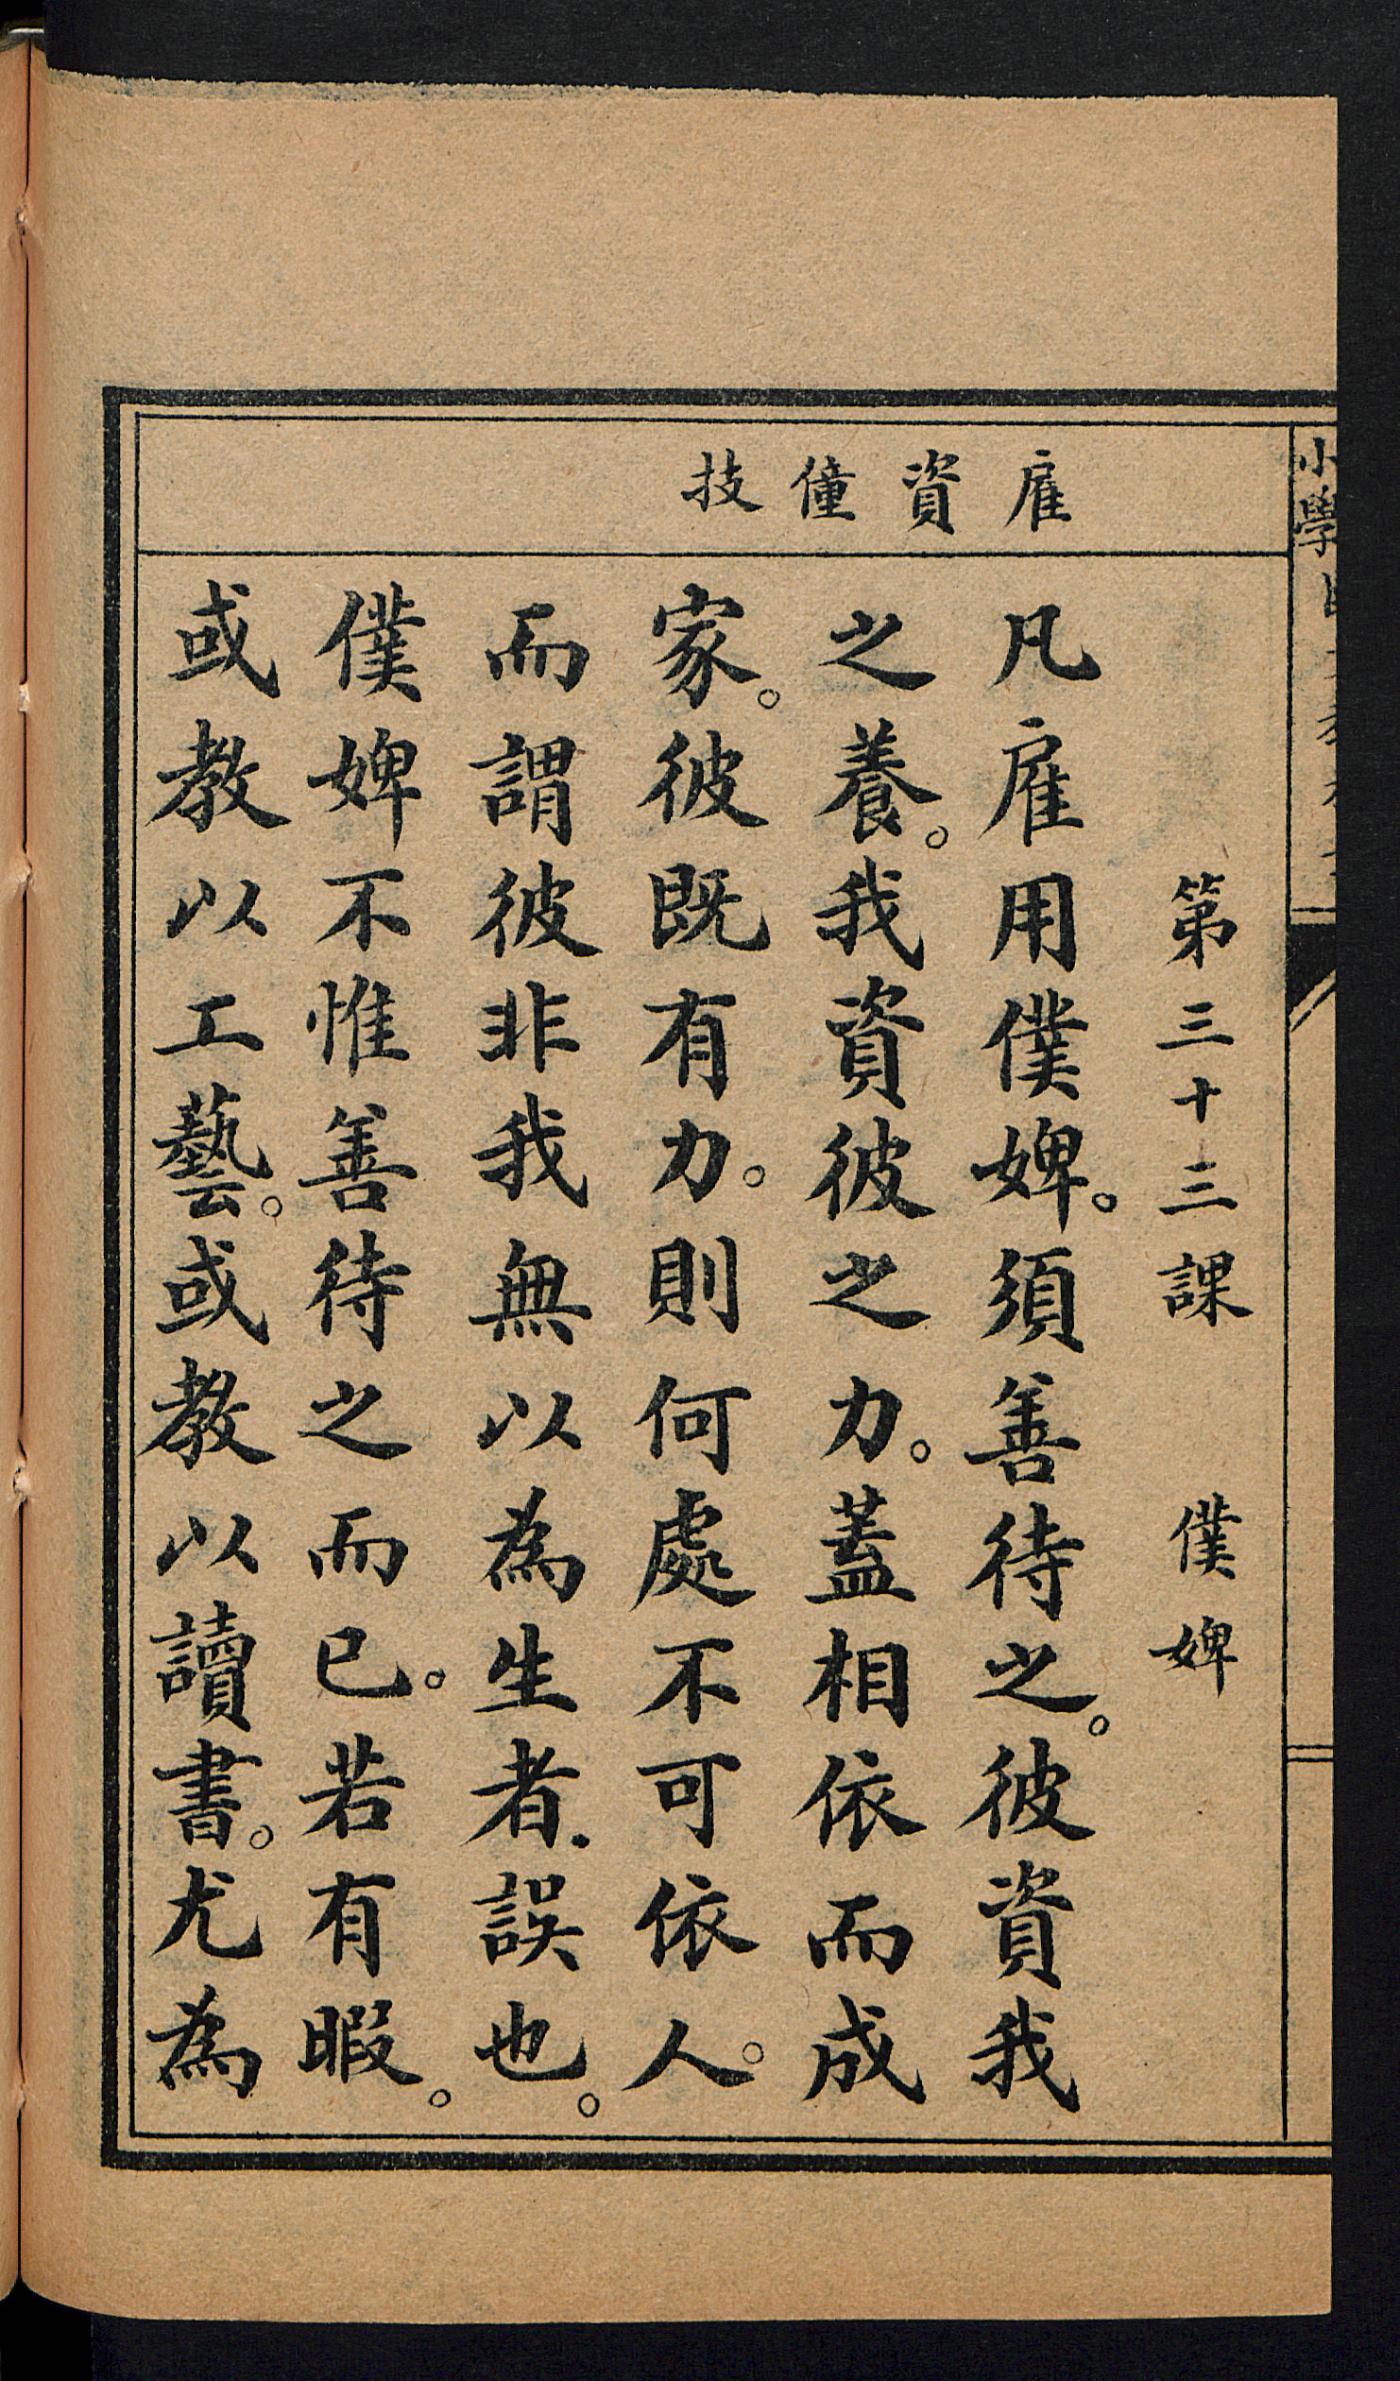 小學
雇資僮技
第三十三課 僕婢
凡雇用僕婢。須善待之。彼資我
之養。我資彼之力。蓋相依而成
家。彼既有力。則何處不可依人。
而謂彼非我無以為生者.誤也。
僕婢不惟善待之而已。若有暇。
或教以工藝。或教以讀書。尤為